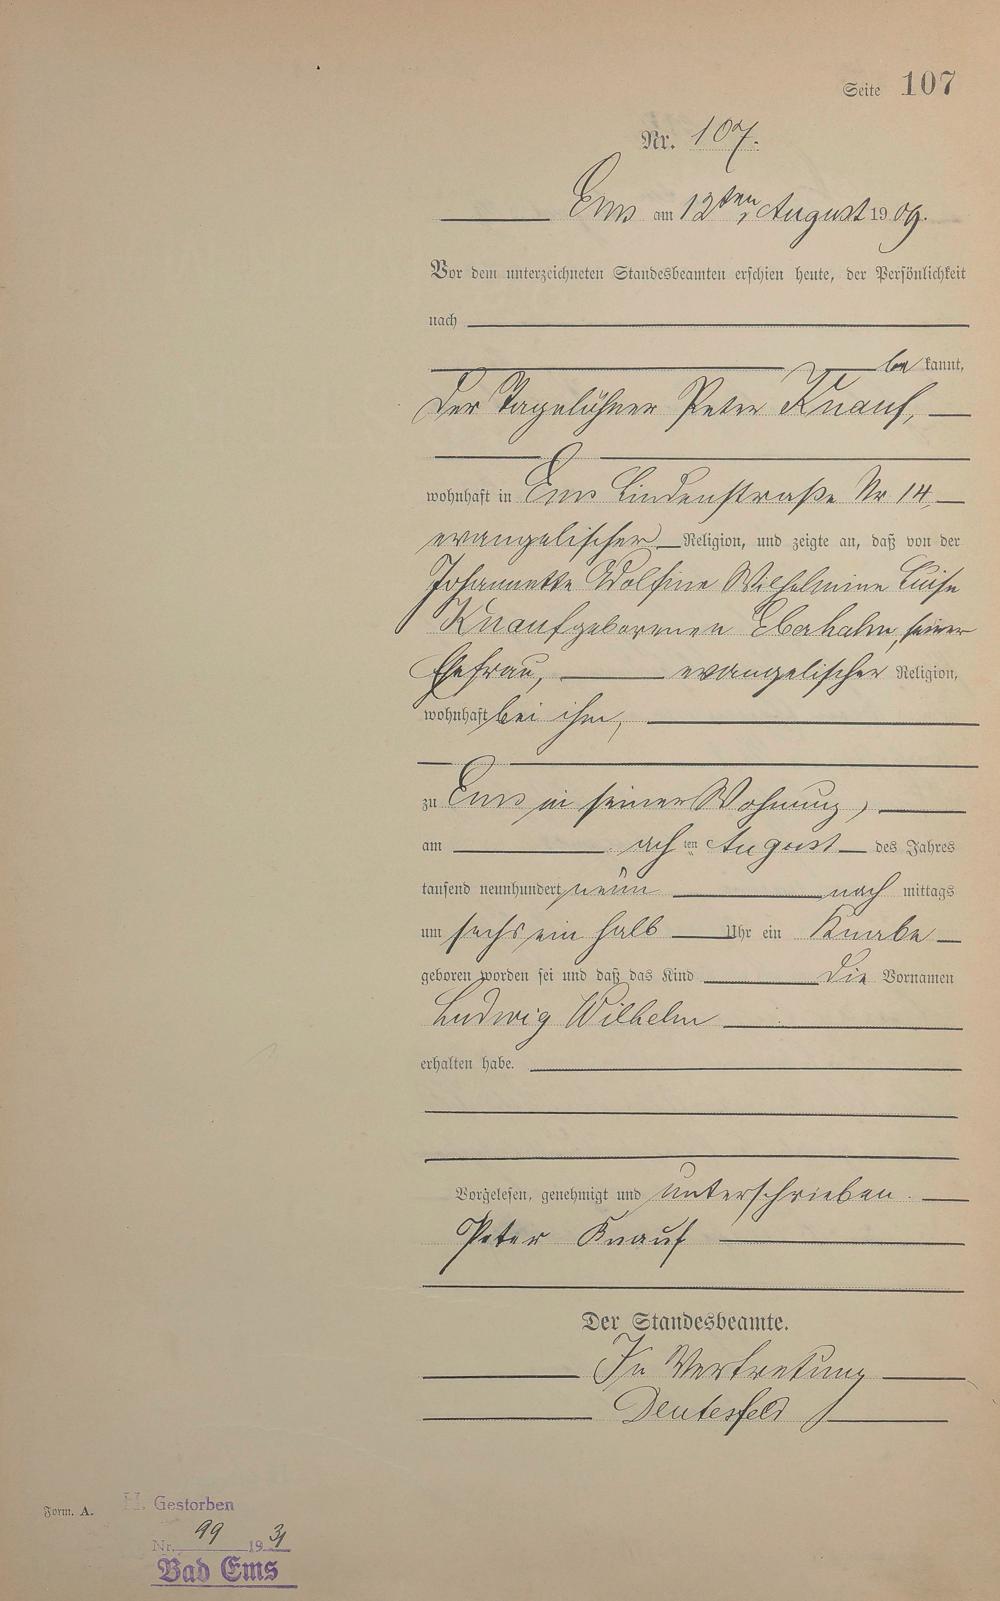 Seite 107
Nr. 107.
Ems am 12ten August 1909.
Vor dem unterzeichneten Standesbeamten erschien heute, der Persönlichkeit
nach
be kannt,
der Tagelöhner Peter Knauf,
wohnhaft in Ems Lindenstraße Nr 14,
evangelischer Religion, und zeigte an, daß von der
Johannette Adolfine Wilhelmine Luise
Knauf geborenen Eberhahn, seiner
Ehefrau, evangelischer Religion,
wohnhaft bei ihm,
zu Ems in seiner Wohnung,
am achten August des Jahres
tausend neunhundert neun nach mittags
um sechs ein halb Uhr ein Knabe
geboren worden sei und daß das Kind die Vornamen
Ludwig Wilhelm
erhalten habe.
Vorgelesen, genehmigt und unterschrieben.
Peter Knauf
Der Standesbeamte.
In Vertretung
Form. A.
H. Gestorben
Nr. 99 1931
Bad Ems